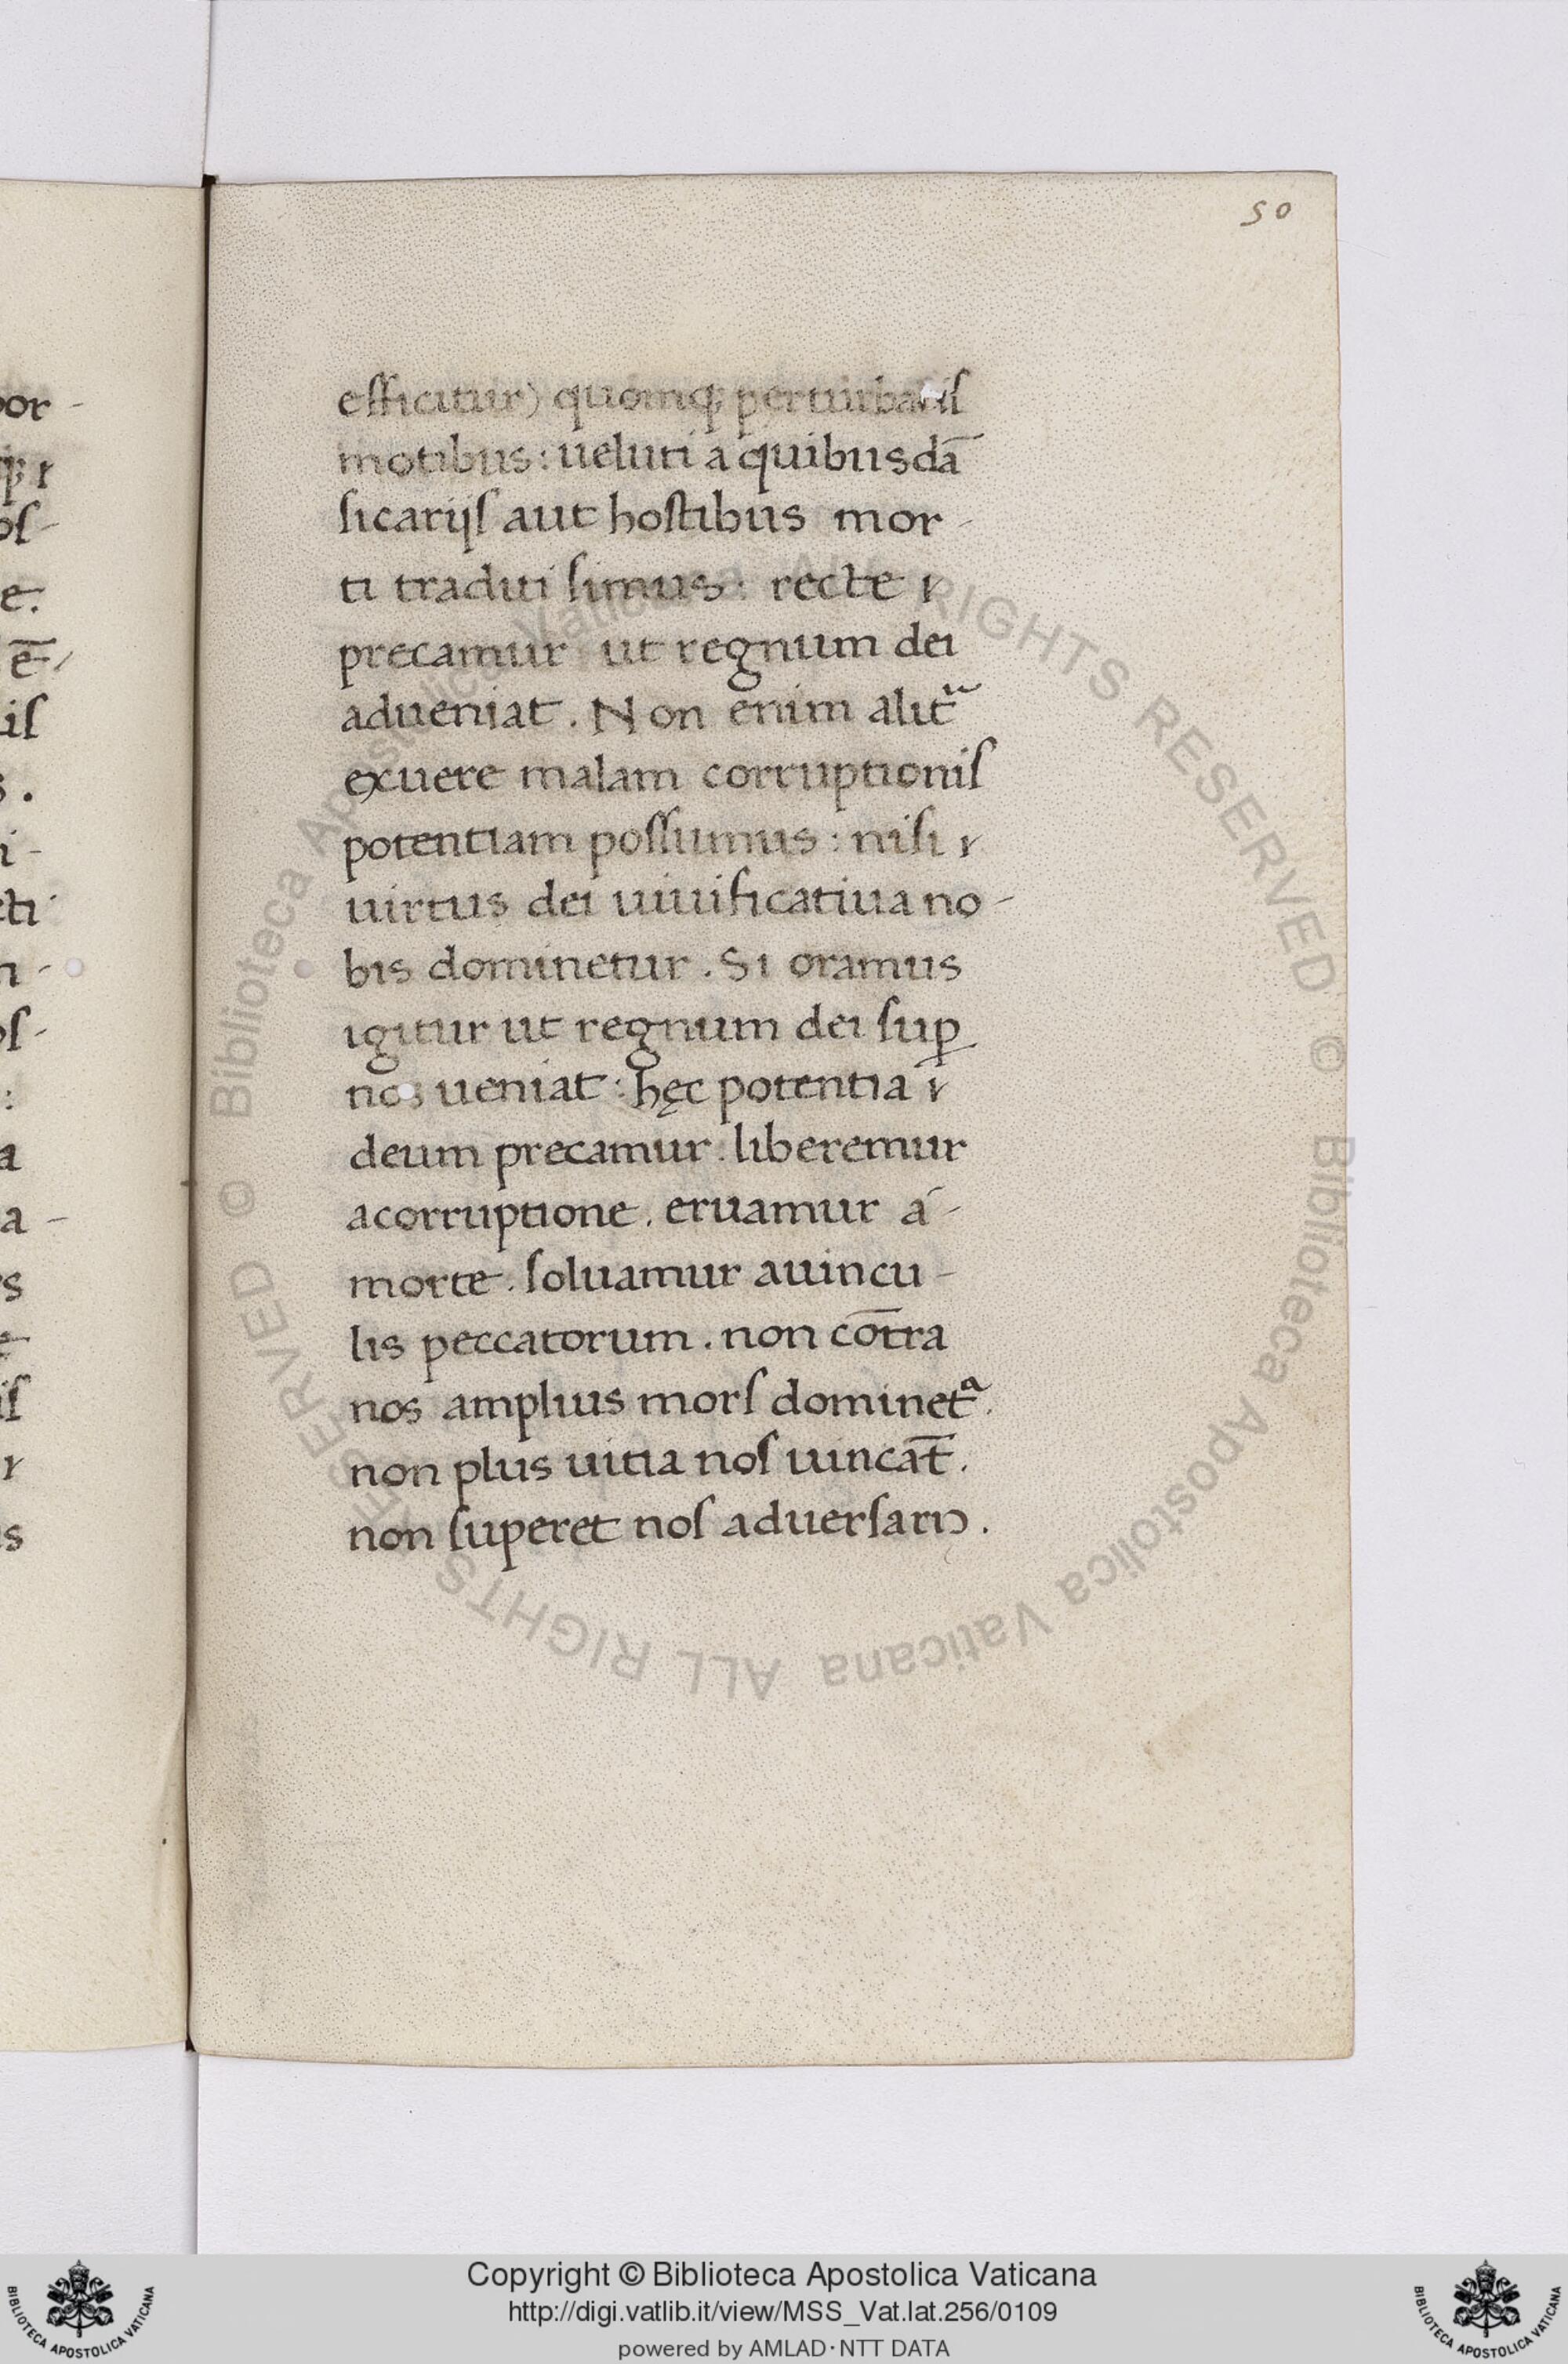 50
efficitur) quomq; perturbatis
motibus: ueluti a quibusdā
sicarijs aut hostibus mor-
ti traditi simus: recte &
precamur ut regnum dei
adueniat. Non enim alitᷓ
excuere malam corruptionis
potentiam possumus: nisi &
uirtus dei uiuificatiua no-
bis dominetur. Si oramus
igitur ut regnum dei suꝑ
nos ueniat: hęc potentia &
deum precamur: liberemur
acorruptione. eruamur á-
morte. soluamur auincu-
lis peccatorum. non cōtra
nos amplius mors dominetᷓ.
non plus uitia nos uincāt.
non superet nos aduersarꝰ.
or-
q; &
os-
e.
ē/
is
s.
i-
cti
n-
os-
:
a
a-
s
e
is
r
s
© Biblioteca Apostolica Vaticana ALL RIGHTS RESERVED © Biblioteca Apostolica Vaticana ALL RIGHTS RESERVED
Copyright © Biblioteca Apostolica Vaticana
http://digi.vatlib.it/view/MSS_Vat.lat.256/0109
powered by AMLAD·NTT DATA
BIBLIOTECA APOSTOLICA VATICANA
BIBLIOTECA APOSTOLICA VATICANA